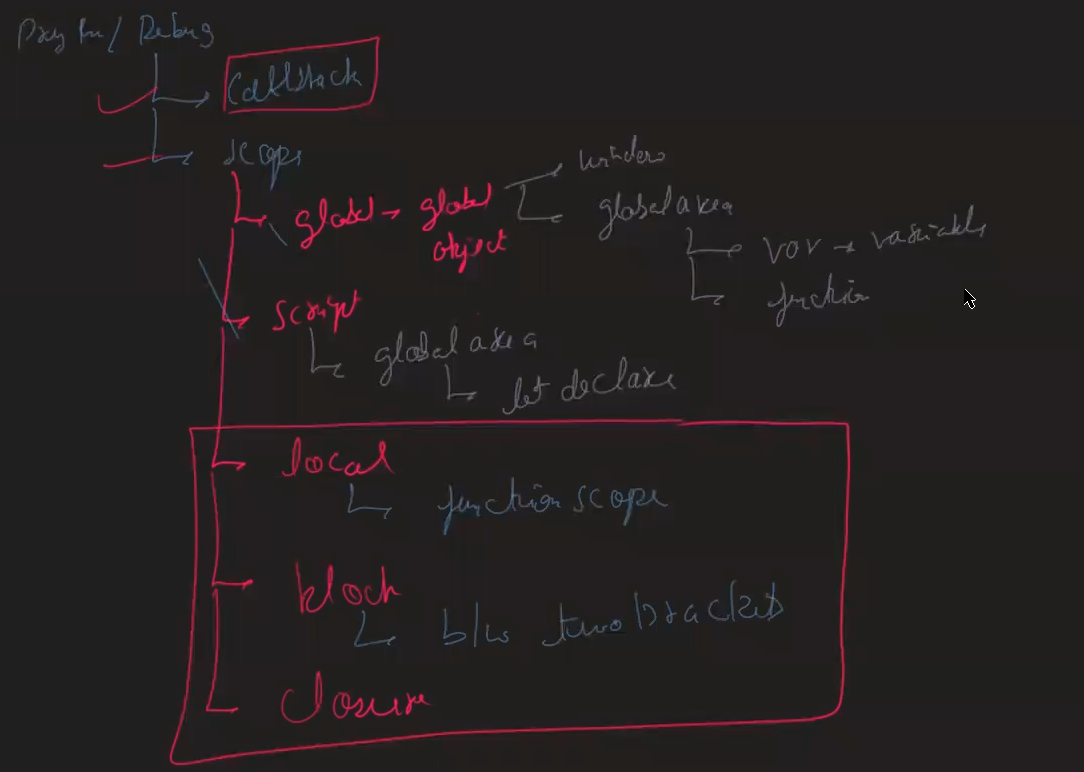 Dry Run / Debug
Callstack
scope
global → global object
window
global area
var → variable
function
script
global area
let declare
local
function scope
block
b/w two brackets
closure